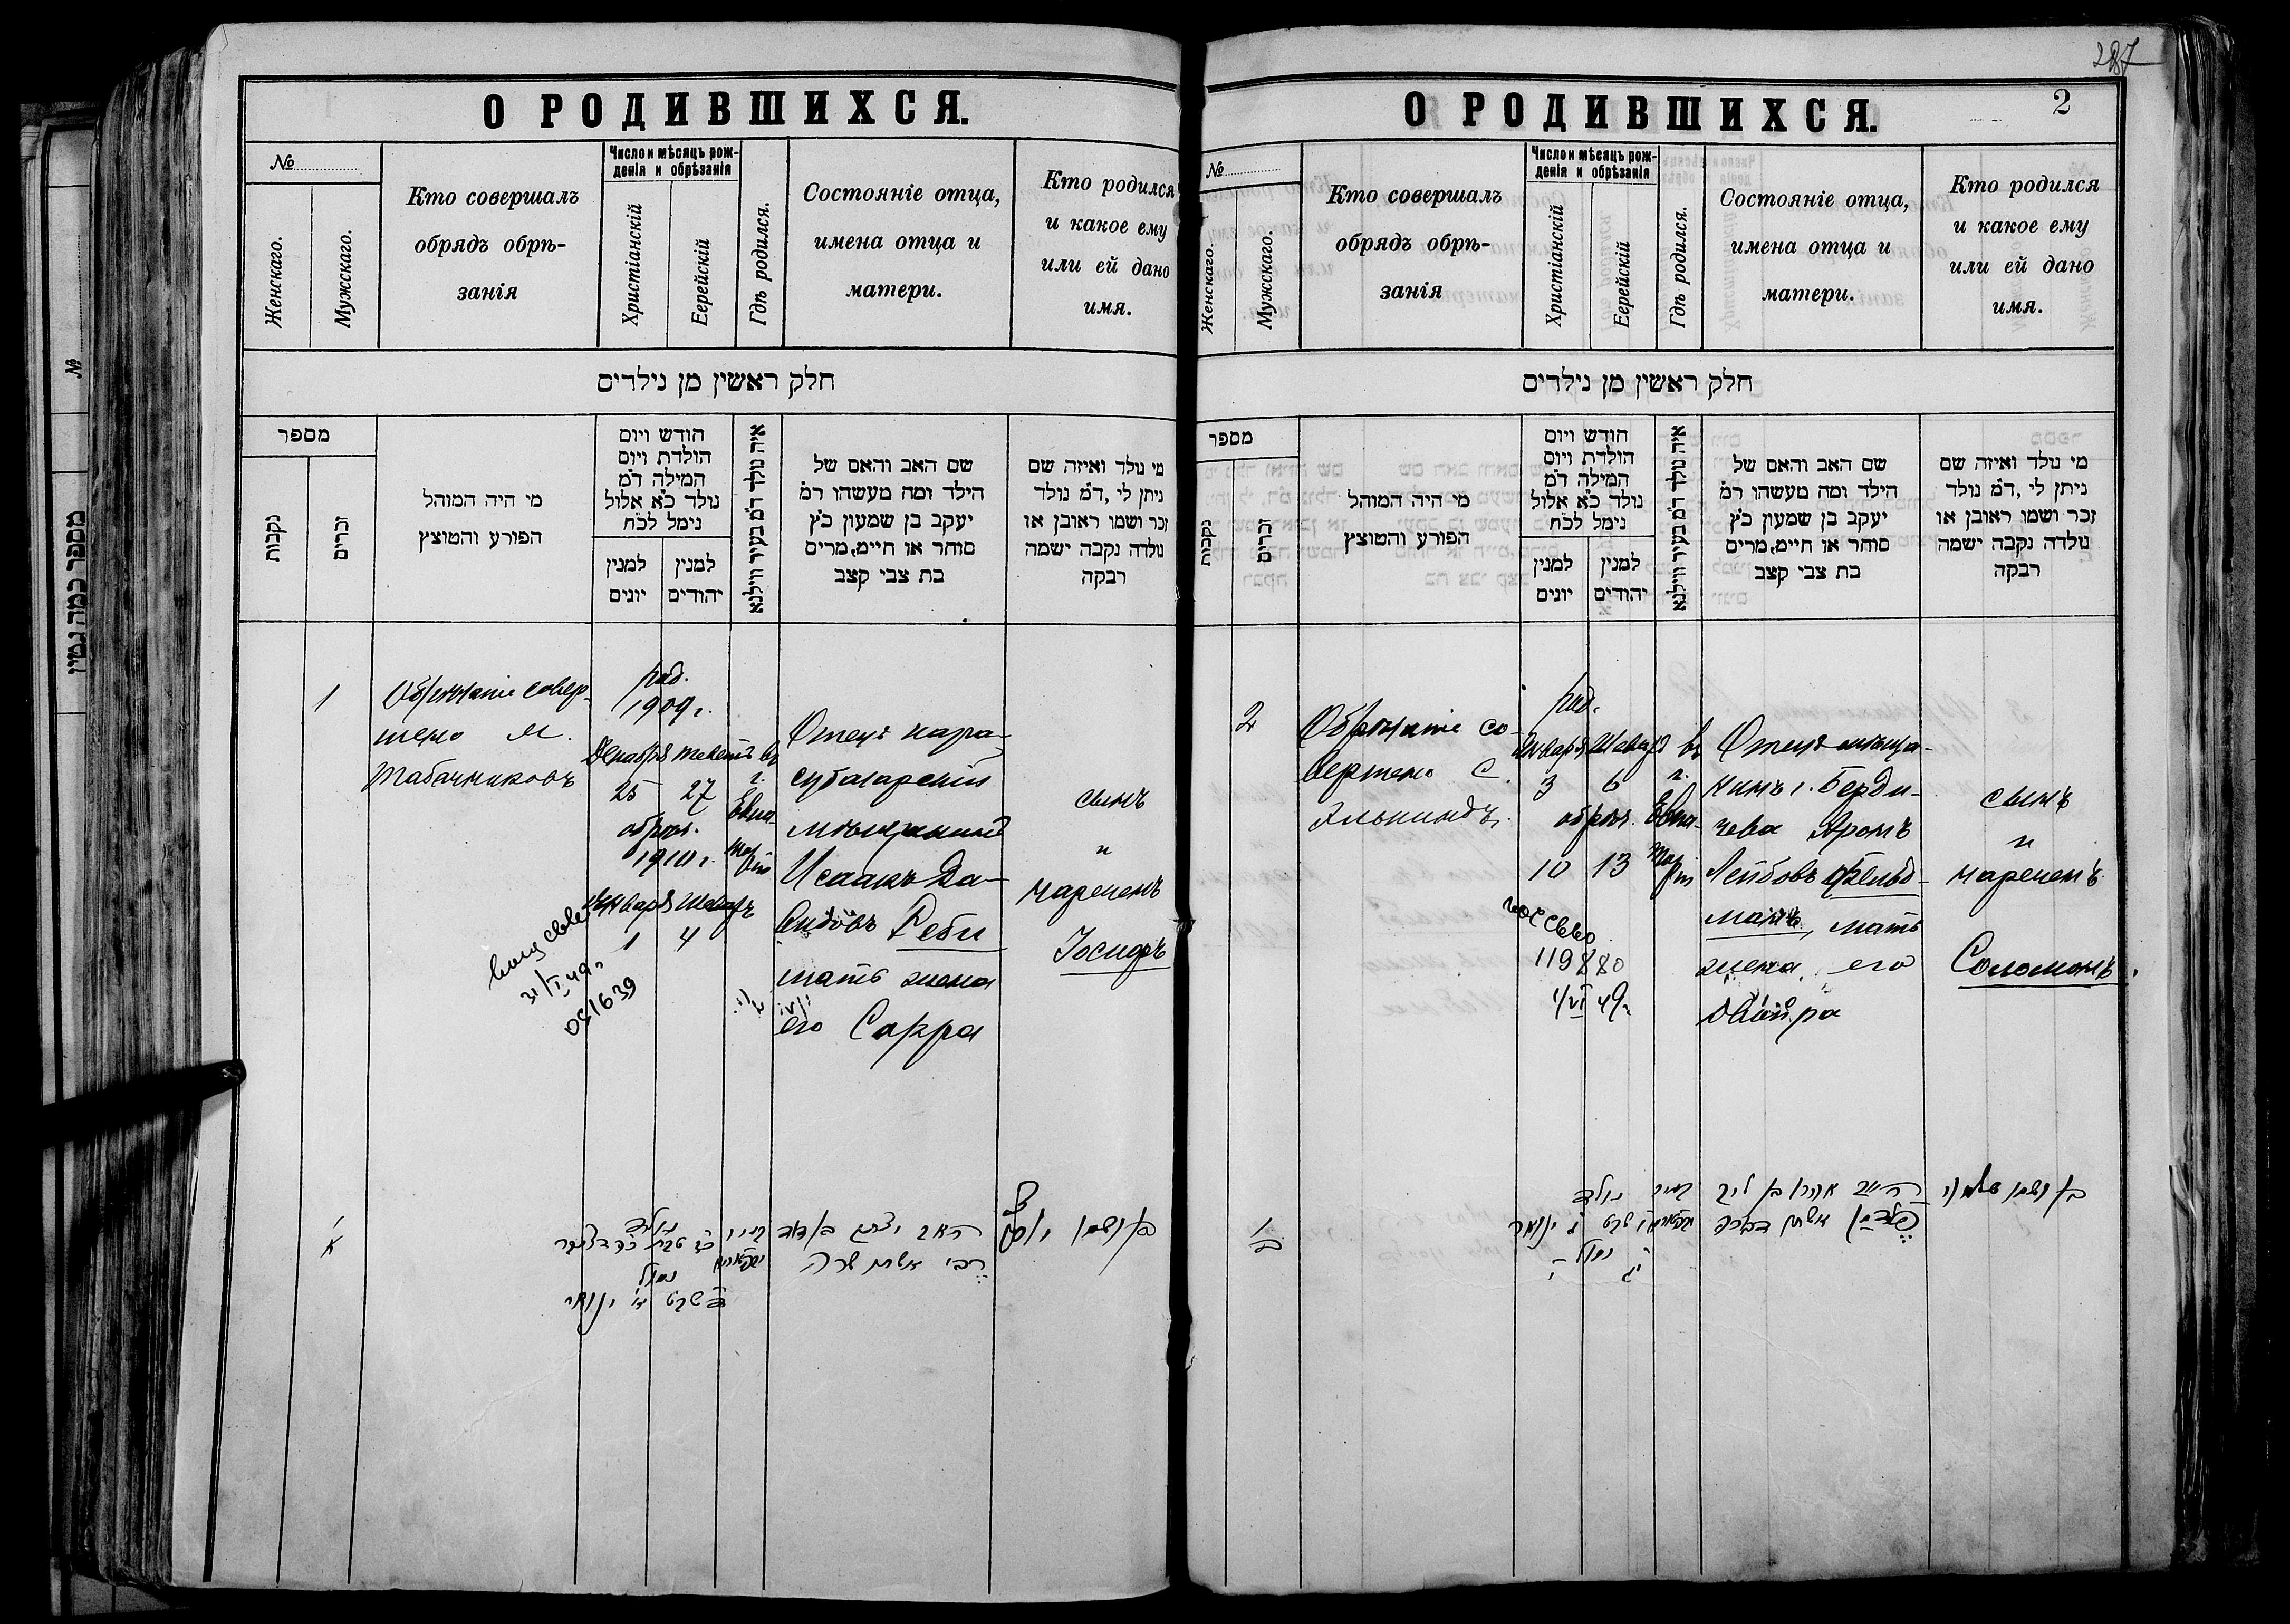 О РОДИВШИХСЯ.
№
Женскаго.
Мужскаго.
Кто совершалъ
обрядъ обрѣ-
занія
Число и мѣсяцъ рож-
денія и обрѣзанія
Христіанскій
Еерейскій
Гдѣ родился.
Состояніе отца,
имена отца и
матери.
Кто родился
и какое ему
или ей дано
имя.
חלק ראשין מן נילדים
מספר
נקבות
זכרים
מי היה המוהל
הפורע והמוצץ
חודש ויום
הולדת ויום
המילה ד״מ
נולד כ״א אלול
נימל לכ״ח
למנין
יונים
למנין
יהודים
איה נולד ד״מ בעיר ווילנא
שם האב והאם של
הילד ומה מעשהו ד״מ
יעקב בן שמעון כ״ץ
סוחר או חיים, מרים
בת צבי קצב
מי נולד ואיזה שם
ניתן לו, ד״מ נולד
זכר ושמו ראובן או
נולדה נקבה ישמה
רבקה
1
Обрѣзаніе совер-
шено М.
Табачниковъ
род.
1909 г.
Декабря Теветъ
25 27
обрѣз.
1910 г.
Января Шеватъ
1 4
въ
г.
Евпа-
тор
іи
Отецъ кара-
субазарскій
мѣщанинъ
Исаакъ Да-
видовъ Реби
мать жена
его Сарра
сынъ
и
нареченъ
Іосифъ
31/I 49 г
א
האב יצחק בן דוד
רבי אשתו שרה
בן ושמו יוסף
287
2
О РОДИВШИХСЯ.
№
Женскаго.
Мужскаго.
Кто совершалъ
обрядъ обрѣ-
занія
Число и мѣсяцъ рож-
денія и обрѣзанія
Христіанскій
Еерейскій
Гдѣ родился.
Состояніе отца,
имена отца и
матери.
Кто родился
и какое ему
или ей дано
имя.
חלק ראשין מן נילדים
מספר
נקבות
זכרים
מי היה המוהל
הפורע והמוצץ
חודש ויום
הולדת ויום
המילה ד״מ
נולד כ״א אלול
נימל לכ״ח
למנין
יונים
למנין
יהודים
איה נולד ד״מ בעיר ווילנא
שם האב והאם של
הילד ומה מעשהו ד״מ
יעקב בן שמעון כ״ץ
סוחר או חיים, מרים
בת צבי קצב
מי נולד ואיזה שם
ניתן לו, ד״מ נולד
זכר ושמו ראובן או
נולדה נקבה ישמה
רבקה
2
Обрѣзаніе со-
вершено С.
Элькиндъ.
род.
Января Шеватъ
3 6
обрѣз.
10 13
въ
г.
Евпа-
тор
іи
Отецъ мѣща-
нинъ г. Берди-
чева Аронъ
Лейбовъ Фельд-
манъ, мать
жена его
Двойра
сынъ
и
нареченъ
Соломонъ.
119880
1/VI 49 г
ב
נולד
האב אהרן בן ליב
פלדמן אשתו דבורה
בן ושמו שלמה